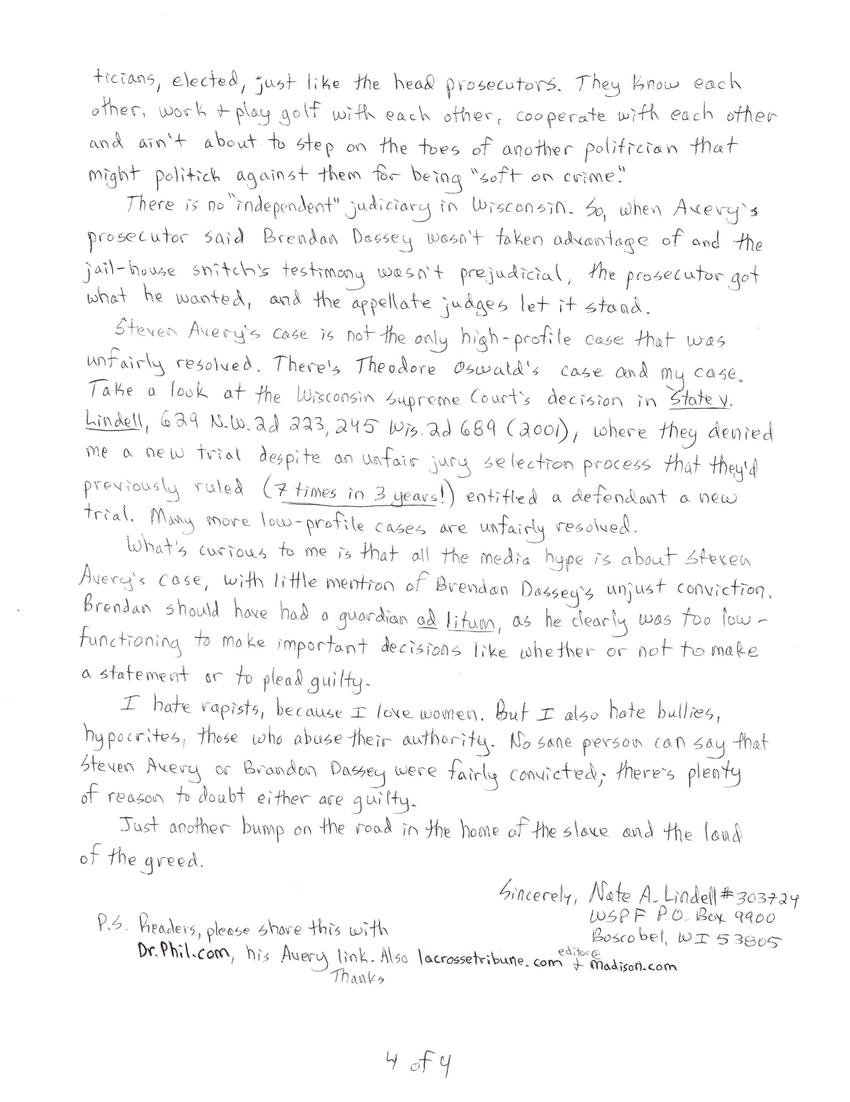 ticians, elected, just like the head prosecutors. They know each
other, work + play golf with each other, cooperate with each other
and ain't about to step on the toes of another politician that
might politick against them for being "soft on crime."
There is no "independent" judiciary in Wisconsin. So, when Avery's
prosecutor said Brendan Dassey wasn't taken advantage of and the
jail-house snitch's testimony wasn't prejudicial, the prosecutor got
what he wanted, and the appellate judges let it stand.
Steven Avery's case is not the only high-profile case that was
unfairly resolved. There's Theodore Oswald's case and my case.
Take a look at the Wisconsin Supreme Court's decision in State v.
Lindell, 629 N.W. 2d 223, 245 Wis. 2d 689 (2001), where they denied
me a new trial despite an unfair jury selection process that they'd
previously ruled (7 times in 3 years!) entitled a defendant a new
trial. Many more low-profile cases are unfairly resolved.
What's curious to me is that all the media hype is about Steven
Avery's case, with little mention of Brendan Dassey's unjust conviction.
Brendan should have had a guardian ad litum, as he clearly was too low-
functioning to make important decisions like whether or not to make
a statement or to plead guilty.
I hate rapists, because I love women. But I also hate bullies,
hypocrites, those who abuse their authority. No sane person can say that
Steven Avery or Brandon Dassey were fairly convicted; there's plenty
of reason to doubt either are guilty.
Just another bump on the road in the home of the slave and the land
of the greed.
Sincerely, Nate A. Lindell #303724
WSPF P.O. Box 9900
Boscobel, WI 53805
P.S. Readers, please share this with
Dr.Phil.com, his Avery link. Also lacrossetribune.com editors + madison.com
Thanks
4 of 4